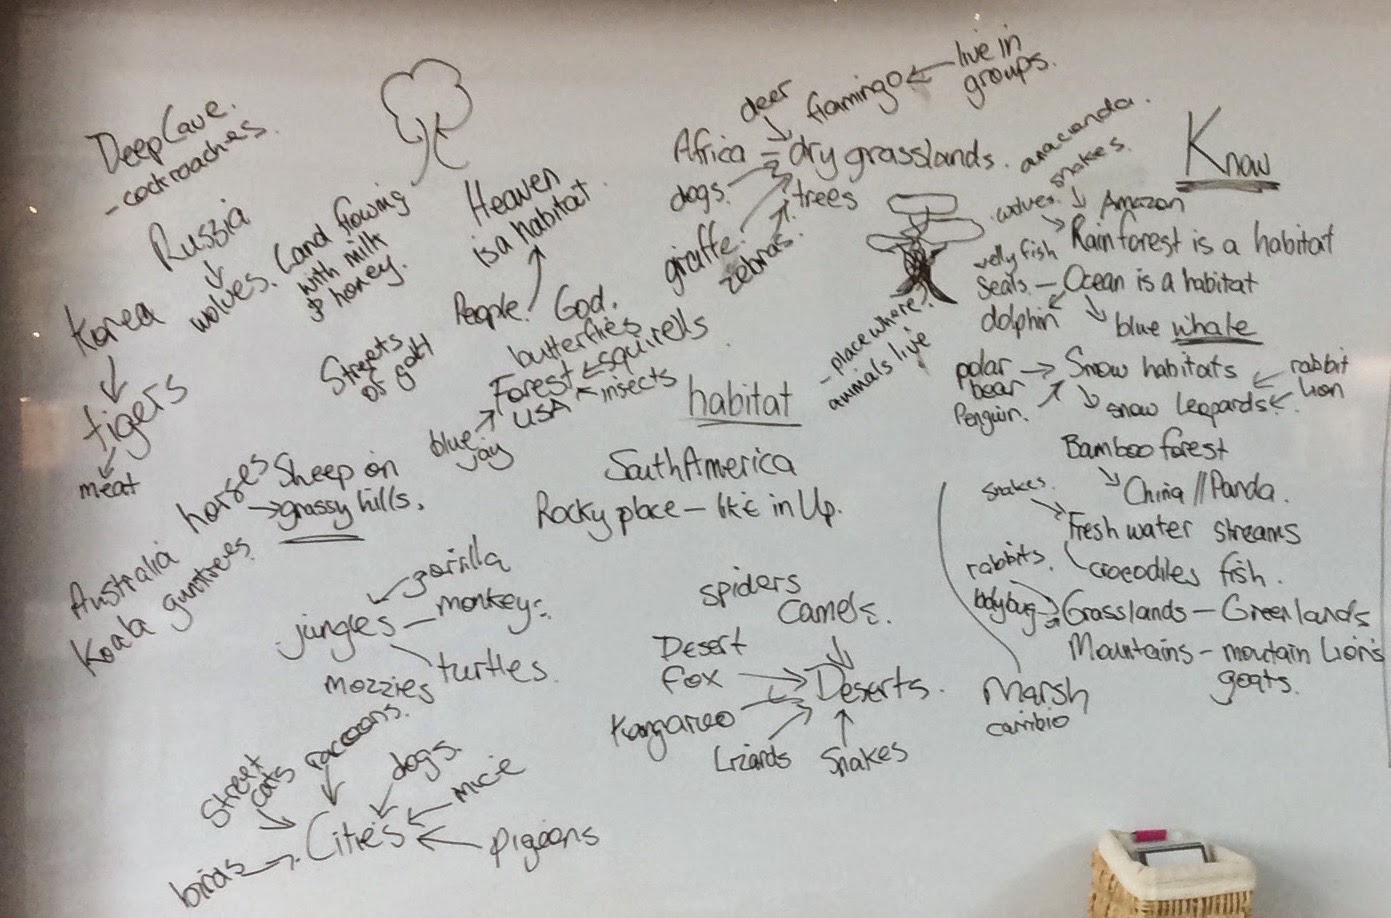 Deep Cave.
- cockroaches.
Russia
wolves.
Korea
tigers
meat
Land flowing
with milk
& honey.
Heaven
is a habitat
People. God.
Streets
of gold
butterflies
Forest squirells
USA insects
blue
jay
horses Sheep on
grassy hills.
Australia
Koala gumtrees.
gorilla
jungles - monkeys
turtles.
mozzies
Street
cats
racoons.
dogs.
mice
Cities
pigeons
birds
deer
flamingo
live in
groups.
Africa = dry grasslands.
dogs.
trees
giraffe.
zebras.
habitat
- place where
animals live
South America
Rocky place - like in Up.
spiders
Camels.
Desert
fox
Deserts.
Kangaroo
Lizards
Snakes
Know
anaconda.
snakes.
wolves.
Amazon
Rainforest is a habitat
Jelly fish
Seals. - Ocean is a habitat
dolphin
blue whale
polar
bear
Penguin.
Snow habitats
rabbit
lion
snow leopards
Bamboo forest
China // Panda.
snakes.
Fresh water streams
crocodiles fish.
rabbits.
ladybug
Grasslands - Greenlands
Mountains - moutain Lions
goats.
Marsh
caribio